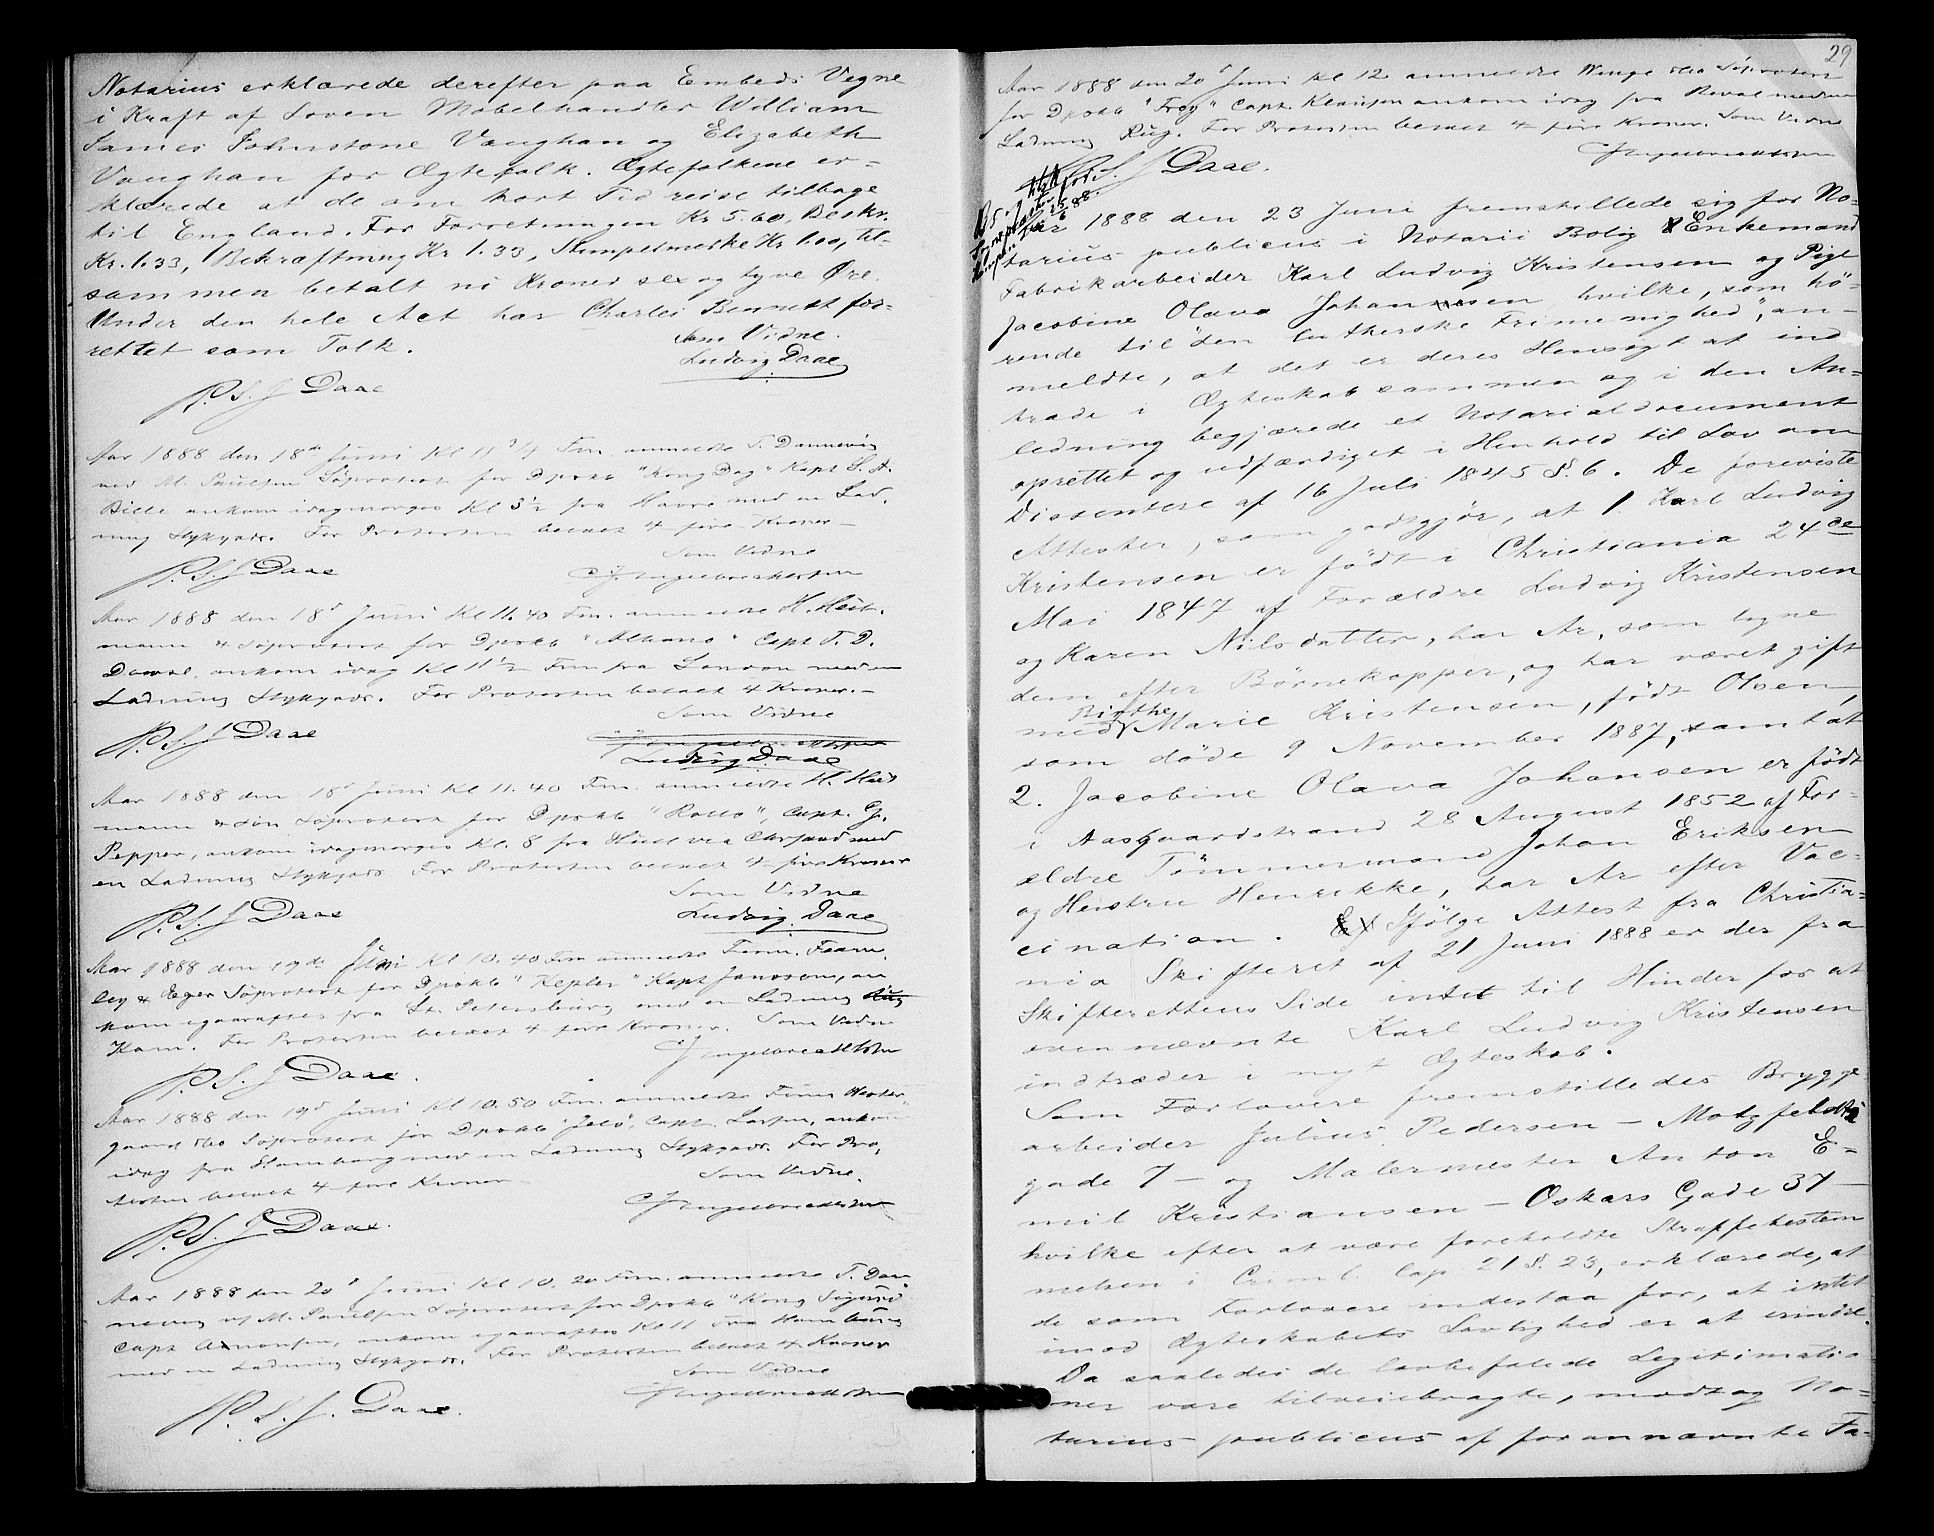 Notarius erklærede derefter paa Embeds Vegne
i Kraft af Loven Møbelhandler William
James Johnstone Vaughan og Elizabeth
Vaughan for Ægtefolk. Ægtefolkene er-
klærede at de om kort Tid reise tilbage
til England. For Forretningen Kr 5.60, Beskr.
Kr. 1.33, Bekræftning Kr 1.33, Stempelmærke Kr 1.00, til-
sammen betalt ni Kroner sex og tyve Øre
Under den hele Act har Charles Bennett for-
rettet som Tolk.
Som Vidne.
Ludvig Daae
P. S. J Daae
Aar 1888 den 18de Juni Kl 11 3/4 Fm. anmeldte T. Dannevig
ved M. Paulsen Søprotest for Dpskb "Kong Dag" Kapt
Bille ankom idagmorges Kl 3½ fra Havre med en Lad-
ning Stykgods. For Protesten betalt 4 fire Kroner
Som Vidne
P. S. J Daae
Engelbrechtsen
Aar 1888 den 18d Juni Kl 11.40 Fm. anmeldte H. Heit-
mann Søprotest for Dpskb "Albano" Capt T. D.
ankom idag Kl 11½ Fm fra London med en
Ladning Stykgods. For Protesten betalt 4 Kroner.-
Som Vidne
P. S. J Daae
Ludvig Daae
Aar 1888 den 18d Juni Kl 11.40 Fm. anmeldte H. Heit
mann & Søn Søprotest for Dpskb "Rollo", Capt. G.
Pepper, ankom idagmorges Kl. 8 fra Hull via Chrsand med
en Ladning Stykgods For Protesten betalt 4 fire Kroner
Som Vidne
P. S. J Daae
Ludvig Daae
Aar 1888 den 19de Juni Kl 10.40 Fm anmeldte Firm. Fearn-
ley & Eger Søprotest for Dpskb "Kepler" Kapt Janssen, an
kom igaaraftes fra St. Petersburg med en Ladning Rug
Korn. For Protesten betalt 4 fire Kroner. Som Vidne
Engelbrechtsen
P. S. J Daae.
Aar 1888 den 19d Juni Kl 10.50 Fm. anmeldte Firma Wester-
gaard Søprotest for Dpskb "Jelö", Capt. Larsen, ankom
idag fra Hamborg med en Ladning Stykgods. For Pro-
testen betalt 4 fire Kroner
Som Vidne.
Engelbrechtsen
P. S. J Daae.
Aar 1888 den 20d Juni Kl 10.20 Fm. anmeldte T. Dan-
nevig v/ M. Paulsen Søprotest for Dpskb "Kong Sigurd
Capt ankom igaaraftes Kl 11 fra Hamburg
med en Ladning Stykgods. For Protesten betalt 4 Kroner
Som Vidne
Engelbrechtsen
P. S. J. Daae.
29
Aar 1888 den 20d Juni Kl 12 anmeldte Winge Søprotest
for Dpskb "Frey" Capt. Klausen ankom idag fra Reval med en
Ladning Rug. For Protesten betalt 4 fire Kroner. Som Vidne
Engelbrechtsen
P. S. J Daae.
Aar 1888 den 23 Juni fremstillede sig for No-
tarius publicus i Notarii Bolig Enkemand
Fabrikarbeider Karl Ludvig Kristensen og Pige
Jacobine Olava Johannesen hvilke, som hö-
rende til "den lutherske Frimenighed", an-
meldte, at det er deres Hensigt at ind
træde i Ægteskab sammen og i den An-
ledning begjærede et Notarialdocument
oprettet og udfærdiget i Henhold til Lov om
Dissentere af 16 Juli 1845 §. 6. De foreviste
Attester, som godtgjør, at 1. Karl Ludvig
Kristensen er født i Christiania 24de
Mai 1847 af Forældre Ludvig Kristensen
og Karen Nilsdatter, har Ar, som tegne
dem efter Børnekopper, og har været gift
Birthe
med Marie Kristensen, født Olsen,
som døde 9 November 1887, samt at
2. Jacobine Olava Johansen er født
i Aasgaardstrand 28 August 1852 af For-
ældre Tømmermand Johan Eriksen
og Hustru Henrikke, har Ar efter Vac-
cination. Ifølge Attest fra Christia-
nia Skifteret af 21 Juni 1888 er der fra
Skifterettens Side intet til Hinder for at
ovennævnte Karl Ludvig Kristensen
indtræder i nyt Ægteskab.
Som Forlovere fremstilledes Brygge
arbeider Julius Pedersen - Motzfeldts
gade 7 - og Malermester Anton E-
mil Kristiansen - Oskars Gade 37 -
hvilke efter at være foreholdte Straffebestem
melsen i Criml. Cap. 21 §. 23, erklærede, at
de som Forlovere indestaa for, at intet
imod Ægteskabets Lovlighed er at erindre.
Da saaledes de lovbefalede Legitimatio
ner vare tilveiebragte, modtog No-
tarius publicus af forannævnte Fa-